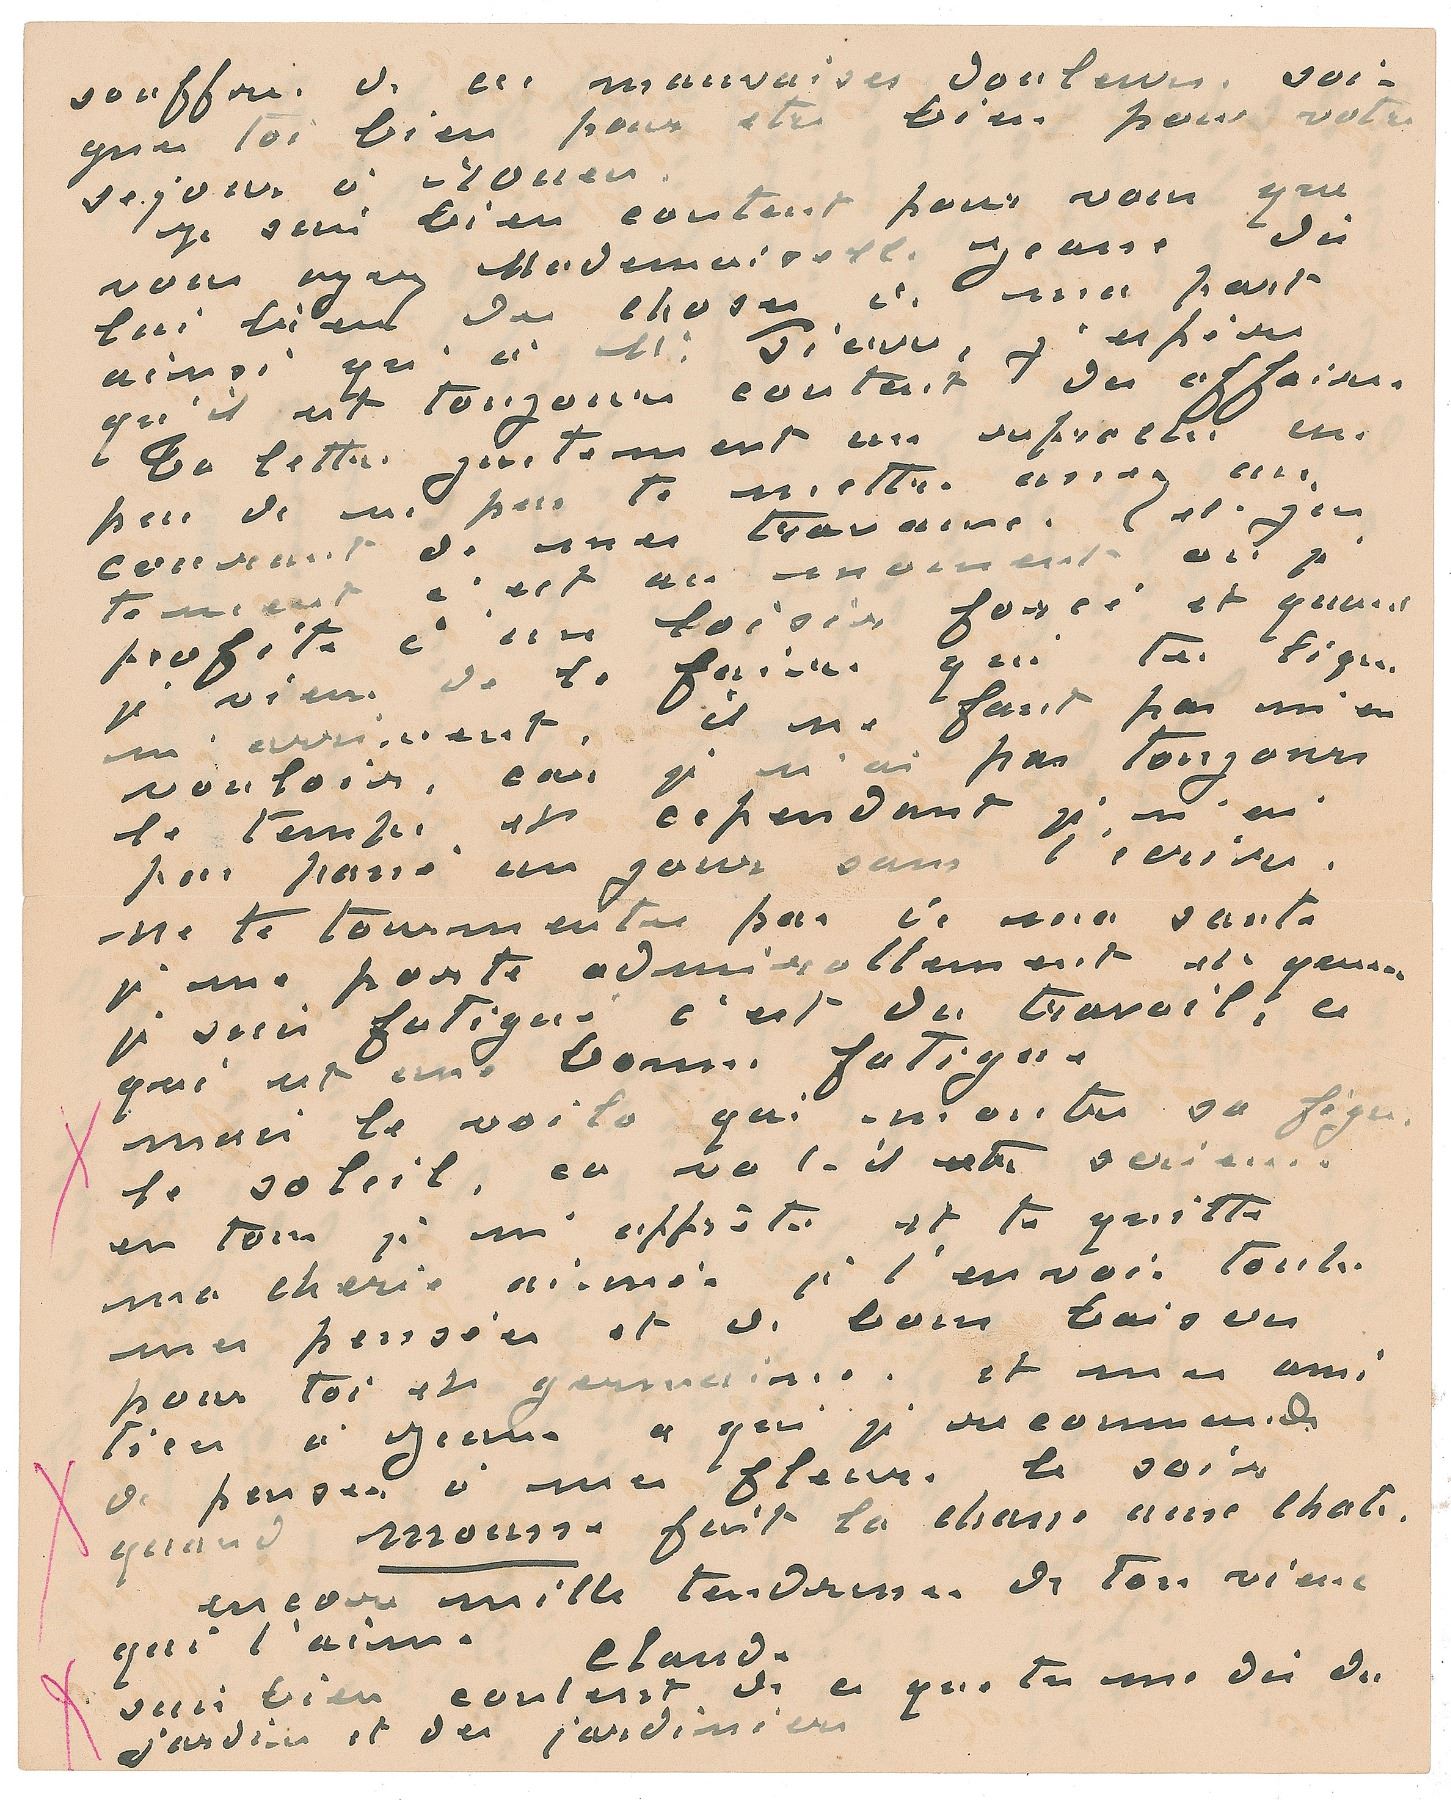 souffrir de ces mauvaises douleurs. soi-
gne toi bien pour etre bien pour votre
sejour à Rouen.
je suis bien content pour vous que
vous ayez Mademoiselle Jeanne dis
lui bien des choses de ma part
ainsi qu'à M. Sisson, j'espere
qu'il est toujours content des affaires.
Ta lettre justement me reproche un
peu de ne pas te mettre assez au
courant de mes travaux. C est jus
tement c'est au moment où je
profite d'un loisir forcé et quand
je viens de le faire que tes lignes
m'arrivent, il ne faut pas m'en
vouloir, car je n'ai pas toujours
le temps et cependant je n'ai
pas passé un jour sans t'ecrire.
Ne te tourmente pas de ma sante
je me porte admirablement et quand
je suis fatigué c'est du travail, ce
qui est une bonne fatigue
mais le voila qui montre sa figure
le soleil, ca va t-il etre serieux.
en tous je m'apprête et te quitte
ma cherie aimée je t'envoie toutes
mes pensées et de bons baisers
pour toi et germaine. et mes ami
tiés à Jeanne a qui je recommande
de penser à mes fleurs. le soir
quand mousse fait la chasse aux chats.
encore mille tendresses de ton vieux
qui t'aime. Claude
suis bien content de ce que tu me dis du
jardin et des jardiniers